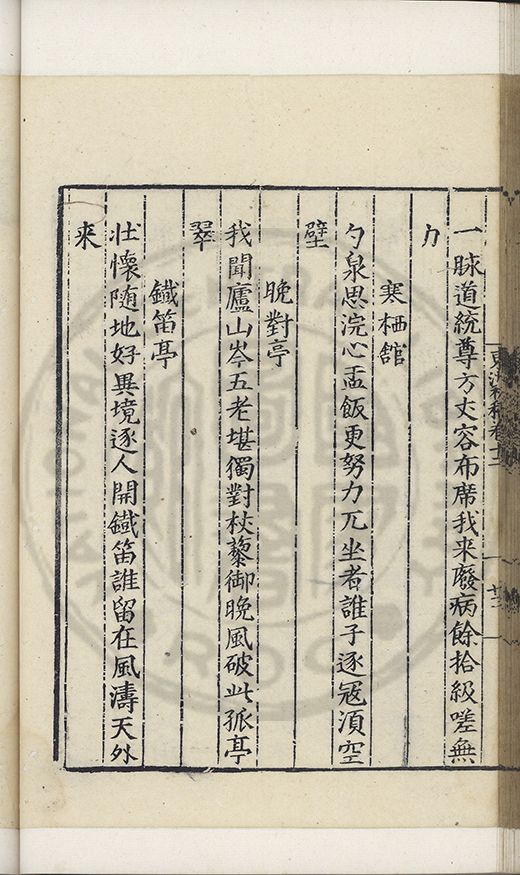 一脉道統尊方丈容布席我来廢病餘拾級嗟無
力
寒栖舘
勺泉思浣心盂飯更努力兀坐者誰子逐冦湏空
壁
晚對亭
我聞廬山岑五老堪獨對杖藜御晚風破此孤亭
翠
鐵笛亭
壯懷随地好異境逐人開鐵笛誰留在風濤天外
来